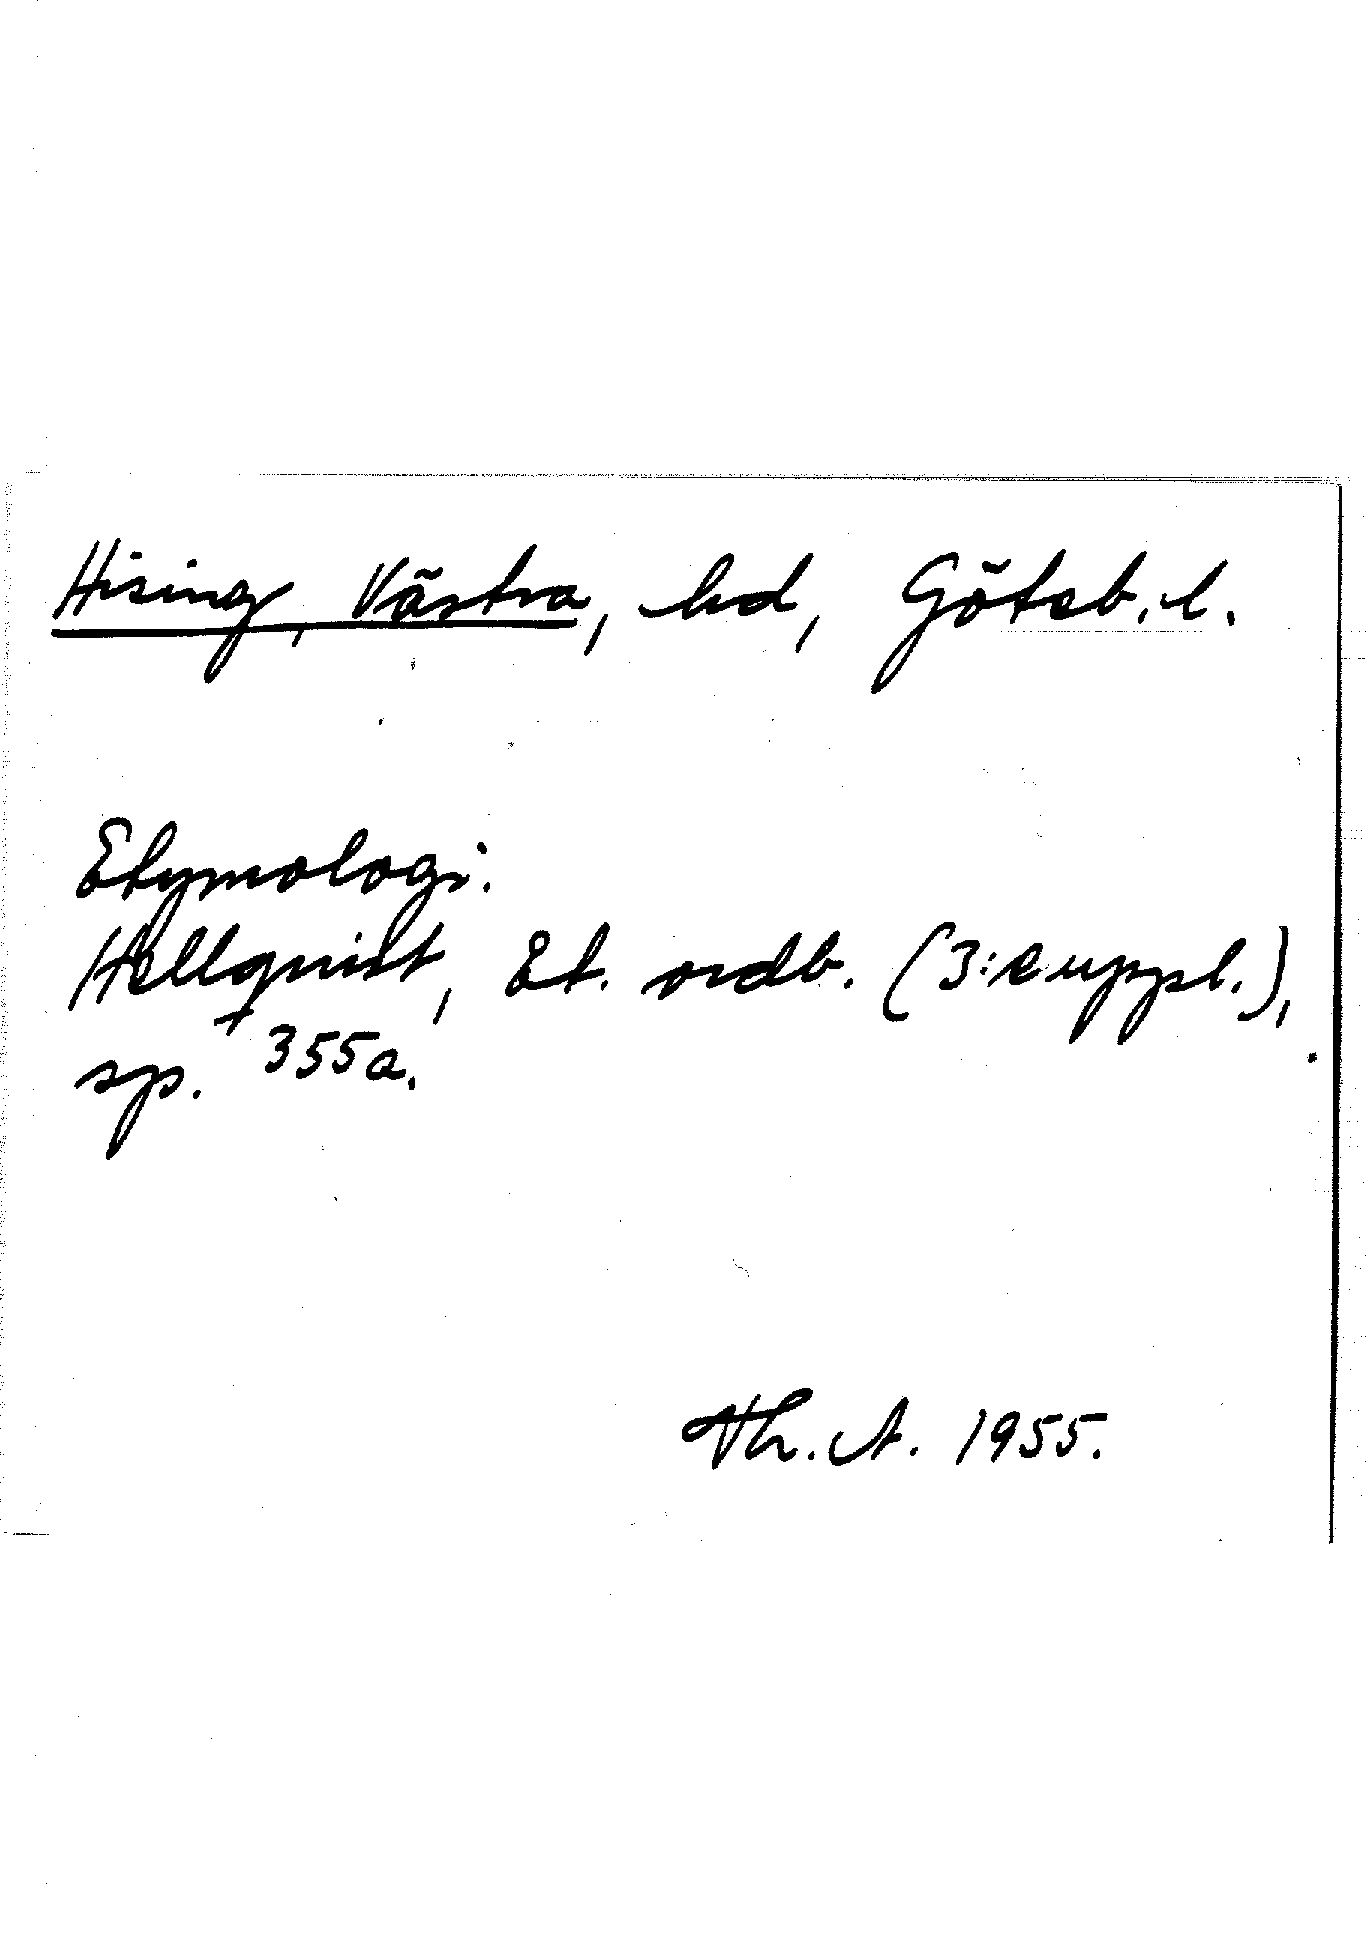 Hising, Västra, hd, Göteb. l.
Etymologi.
Hellquist, Et. ordb. (3:e uppl.),
sp. 355a.
Th. A. 1955.